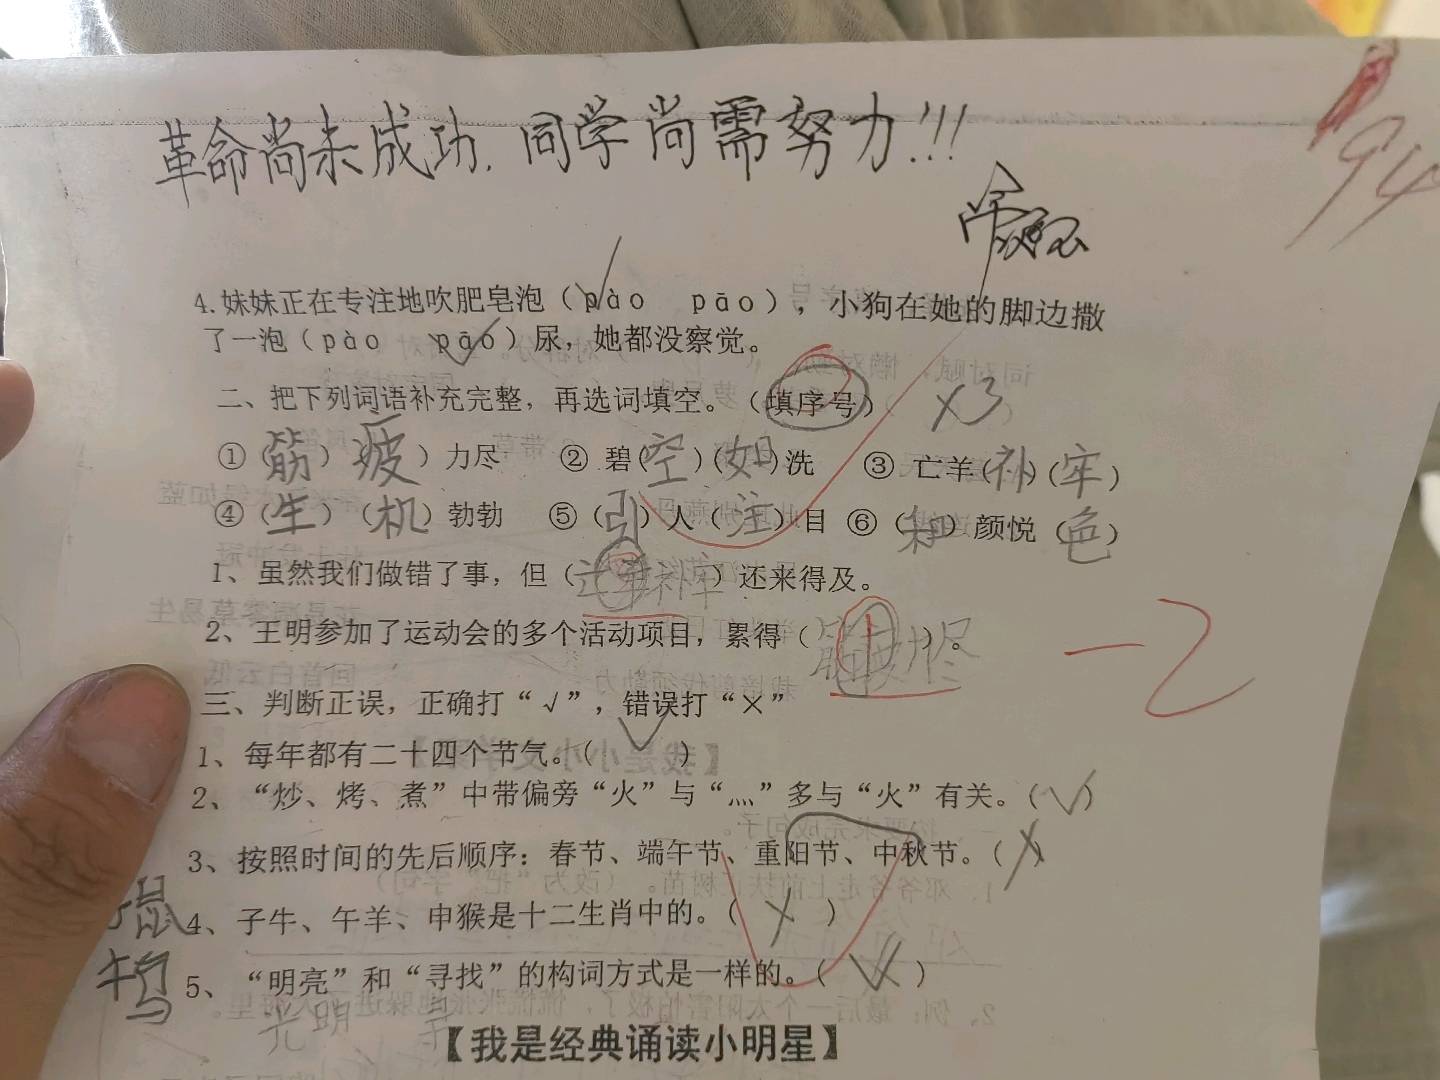 革命尚未成功.同学尚需努力!!!
94
4.妹妹正在专注地吹肥皂泡（pào pāo），小狗在她的脚边撒
了一泡（pào pāo）尿，她都没察觉。
二、把下列词语补充完整，再选词填空。（填序号） ×3
①（筋）（疲）力尽 ② 碧（空）（如）洗 ③ 亡羊（补）（牢）
④（生）（机）勃勃 ⑤（引）人（注）目 ⑥（和）颜悦（色）
1、虽然我们做错了事，但（ ）还来得及。
2、王明参加了运动会的多个活动项目，累得（ ）。
-2
三、判断正误，正确打“√”，错误打“×”
1、每年都有二十四个节气。（√）
2、“炒、烤、煮”中带偏旁“火”与“灬”多与“火”有关。（√）
3、按照时间的先后顺序：春节、端午节、重阳节、中秋节。（×）
鼠
4、子牛、午羊、申猴是十二生肖中的。（×）
5、“明亮”和“寻找”的构词方式是一样的。（√）
光明 寻
【我是经典诵读小明星】